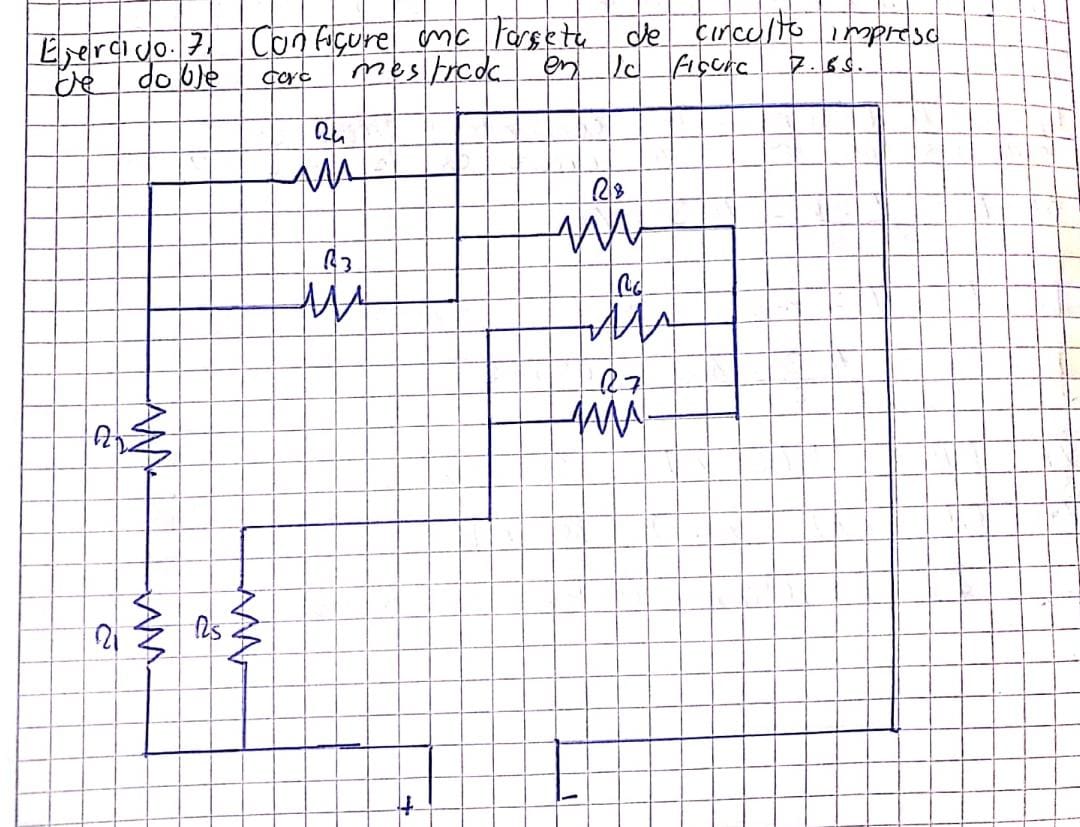 Ejercicio. 7. Configure una tarjeta de circuito impreso
de doble cara mostrada en la figura 7.55.
R4
R8
R3
R6
R7
R2
R1
R5
+
-